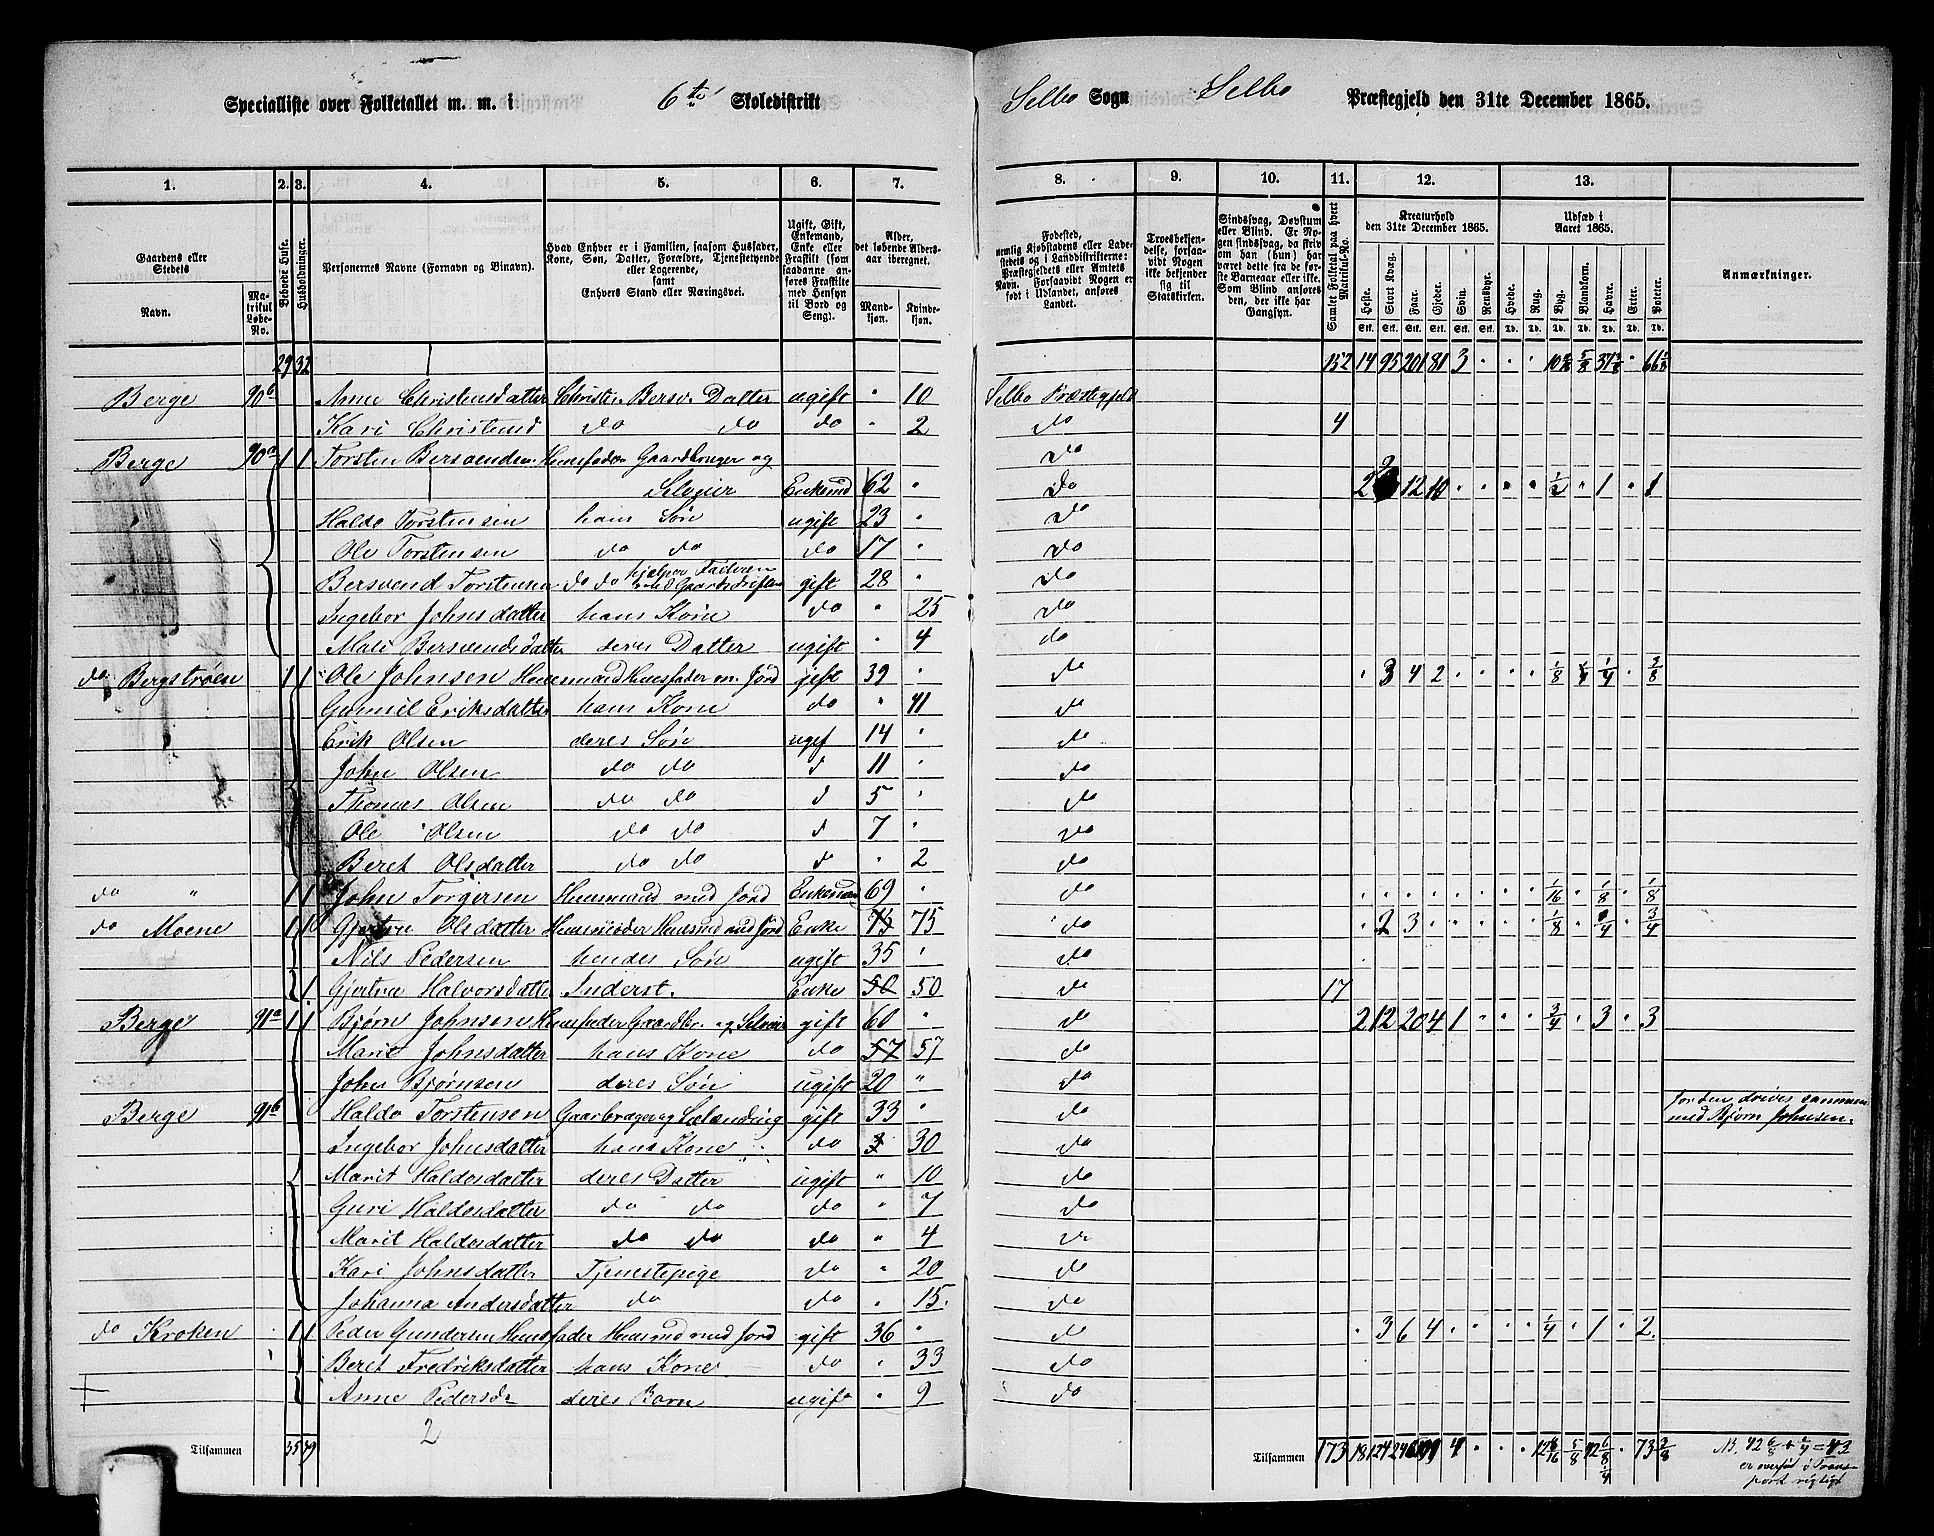 Specialliste over Folketallet m. m. i 6te Skoledistrikt Selbo Sogn Selbo Præstegjeld den 31te December 1865.
1. 2. 3. 4. 5. 6. 7. 8. 9. 10. 11. 12. 13.
Gaardens eller Stedets
Navn.
Matrikul Løbe-No.
Beboede Huse.
Husholdninger.
Personernes Navne (Fornavn og Binavn).
Hvad Enhver er i Familien, saasom Husfader, Kone, Søn, Datter, Forældre, Tjenestetyende eller Logerende, samt Enhvers Stand eller Næringsvei.
Ugift, Gift, Enkemand, Enke eller Fraskilt (som saadanne anføres Fraskilte med Hensyn til Bord og Seng).
Alder, det løbende Aldersaar iberegnet.
Mandkjøn. Kvindekjøn.
Fødested, nemlig Kjøbstadens eller Ladestedets og i Landdistrikterne: Præstegjeldets eller Amtets Navn. Forsaavidt Nogen er født i Udlandet, anføres Landet.
Troesbekjendelse, forsaavidt Nogen ikke bekjender sig til Statskirken.
Sindssvag, Døvstum eller Blind. Er Nogen sindssvag, da skriv om han (hun) har været dette fra de første Barneaar eller ikke. Som Blind anføres den, der ikke har Gangsyn.
Samlet Folketal paa hvert Matrikul-No.
Kreaturhold den 31te December 1865.
Heste. Stort Kvæg. Faar. Gjeder. Svin. Rensdyr.
Udsæd i Aaret 1865.
Hvede. Rug. Byg. Blandkorn. Havre. Erter. Poteter.
Anmærkninger.
29 32 152 14 95 201 81 3
Berge 90b Anne Christensdatter Christen Bersv. Datter ugift " 10 Selbo Præstegjeld
Kari Christensd do do do " 2 do 4
Berge 90a 1 1 Torsten Bersvendsen Huusfader Gaardbruger og do
Selveier Enkemd 62 " do 2 12 10 1/2 1 1
Haldo Torstensen hans Søn ugift 23 " do
Ole Torstensen do do do 17 " do
Bersvend Torstensen do do hjelper Faderen med Gaardsdriften gift 28 " do
Ingebor Johnsdatter hans Kone do " 25 do
Mali Bersvendsdatter deres Datter ugift " 4 do
do Bergstrøen 1 1 Ole Johnsen Huusmand Huusfader m. Jord gift 39 " do 3 4 2 1/8 1/4 1/4 3/8
Gunnil Eriksdatter hans Kone do " 41 do
Erik Olsen deres Søn ugif 14 " do
John Olsen do do d 11 " do
Thomas Olsen do do d 5 " do
Ole Olsen do do d 7 " do
Beret Olsdatter do do do " 2 do
do " 1 1 John Torgersen Huusmand med Jord Enkemand 69 " do 1/16 1/8 1/8
do Moene 1 1 Gjertru Olsdatter Huusmoder Huusmd med Jord Enke 75 75 do 2 3 1/8 1/4 3/4
Nils Pedersen hendes Søn ugift 35 " do
1 Gjertru Halvorsdatter Inderst. Enke 50 50 do 17
Berge 91a 1 1 Bjørn Johnsen Huusfader Gaardbr. og Selveier gift 60 " do 2 12 20 4 1 3/4 3 3
Marit Johnsdatter hans Kone do 57 57 do
John Bjørnsen deres Søn ugift 20 " do
Berge 91b Haldo Torstensen Gaarbruger og gift 33 " do Jorden drives sammen med Bjørn Johnsen.
Ingebor Johnsdatter hans Kone do 3 30 do
Marit Haldosdatter deres Datter ugift " 10 do
Guri Haldosdatter do do do " 7 do
Marit Haldosdatter do do do " 4 do
Kari Johnsdatter Tjenestepige do " 20 do
Johanna Andersdatter do do " 15. do
do Kroken 1 1 Peder Gundersen Huusfader Huusmd med Jord gift 36 " do 3 6 4 1/4 1 2
Beret Fredriksdatter hans Kone do " 33 do
Anne Pedersd deres Barn ugift " 9 do
2
Tilsammen 35 39
Tilsammen 173 18 124 246 4 73 3/8
NB. 42 6/8 + 1/4 = 43 er overført i Transport rigtigt